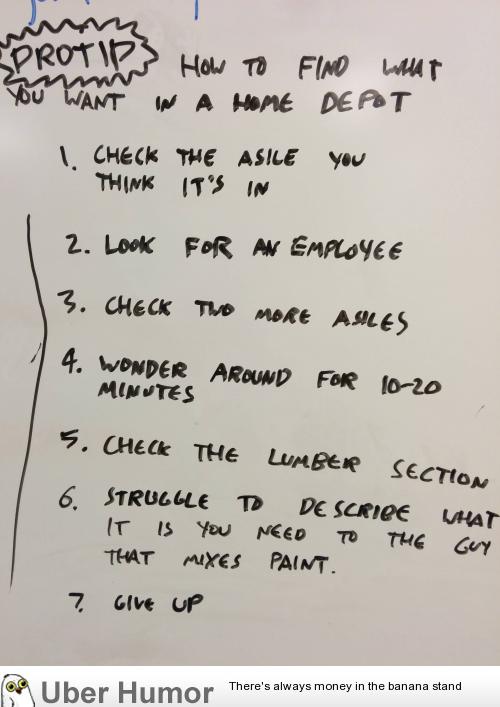 PROTIP HOW TO FIND WHAT
YOU WANT IN A HOME DEPOT
1. CHECK THE ASILE YOU
THINK IT'S IN
2. LOOK FOR AN EMPLOYEE
3. CHECK TWO MORE ASILES
4. WONDER AROUND FOR 10-20
MINUTES
5. CHECK THE LUMBER SECTION
6. STRUGGLE TO DESCRIBE WHAT
IT IS YOU NEED TO THE GUY
THAT MIXES PAINT.
7. GIVE UP
Uber Humor There's always money in the banana stand